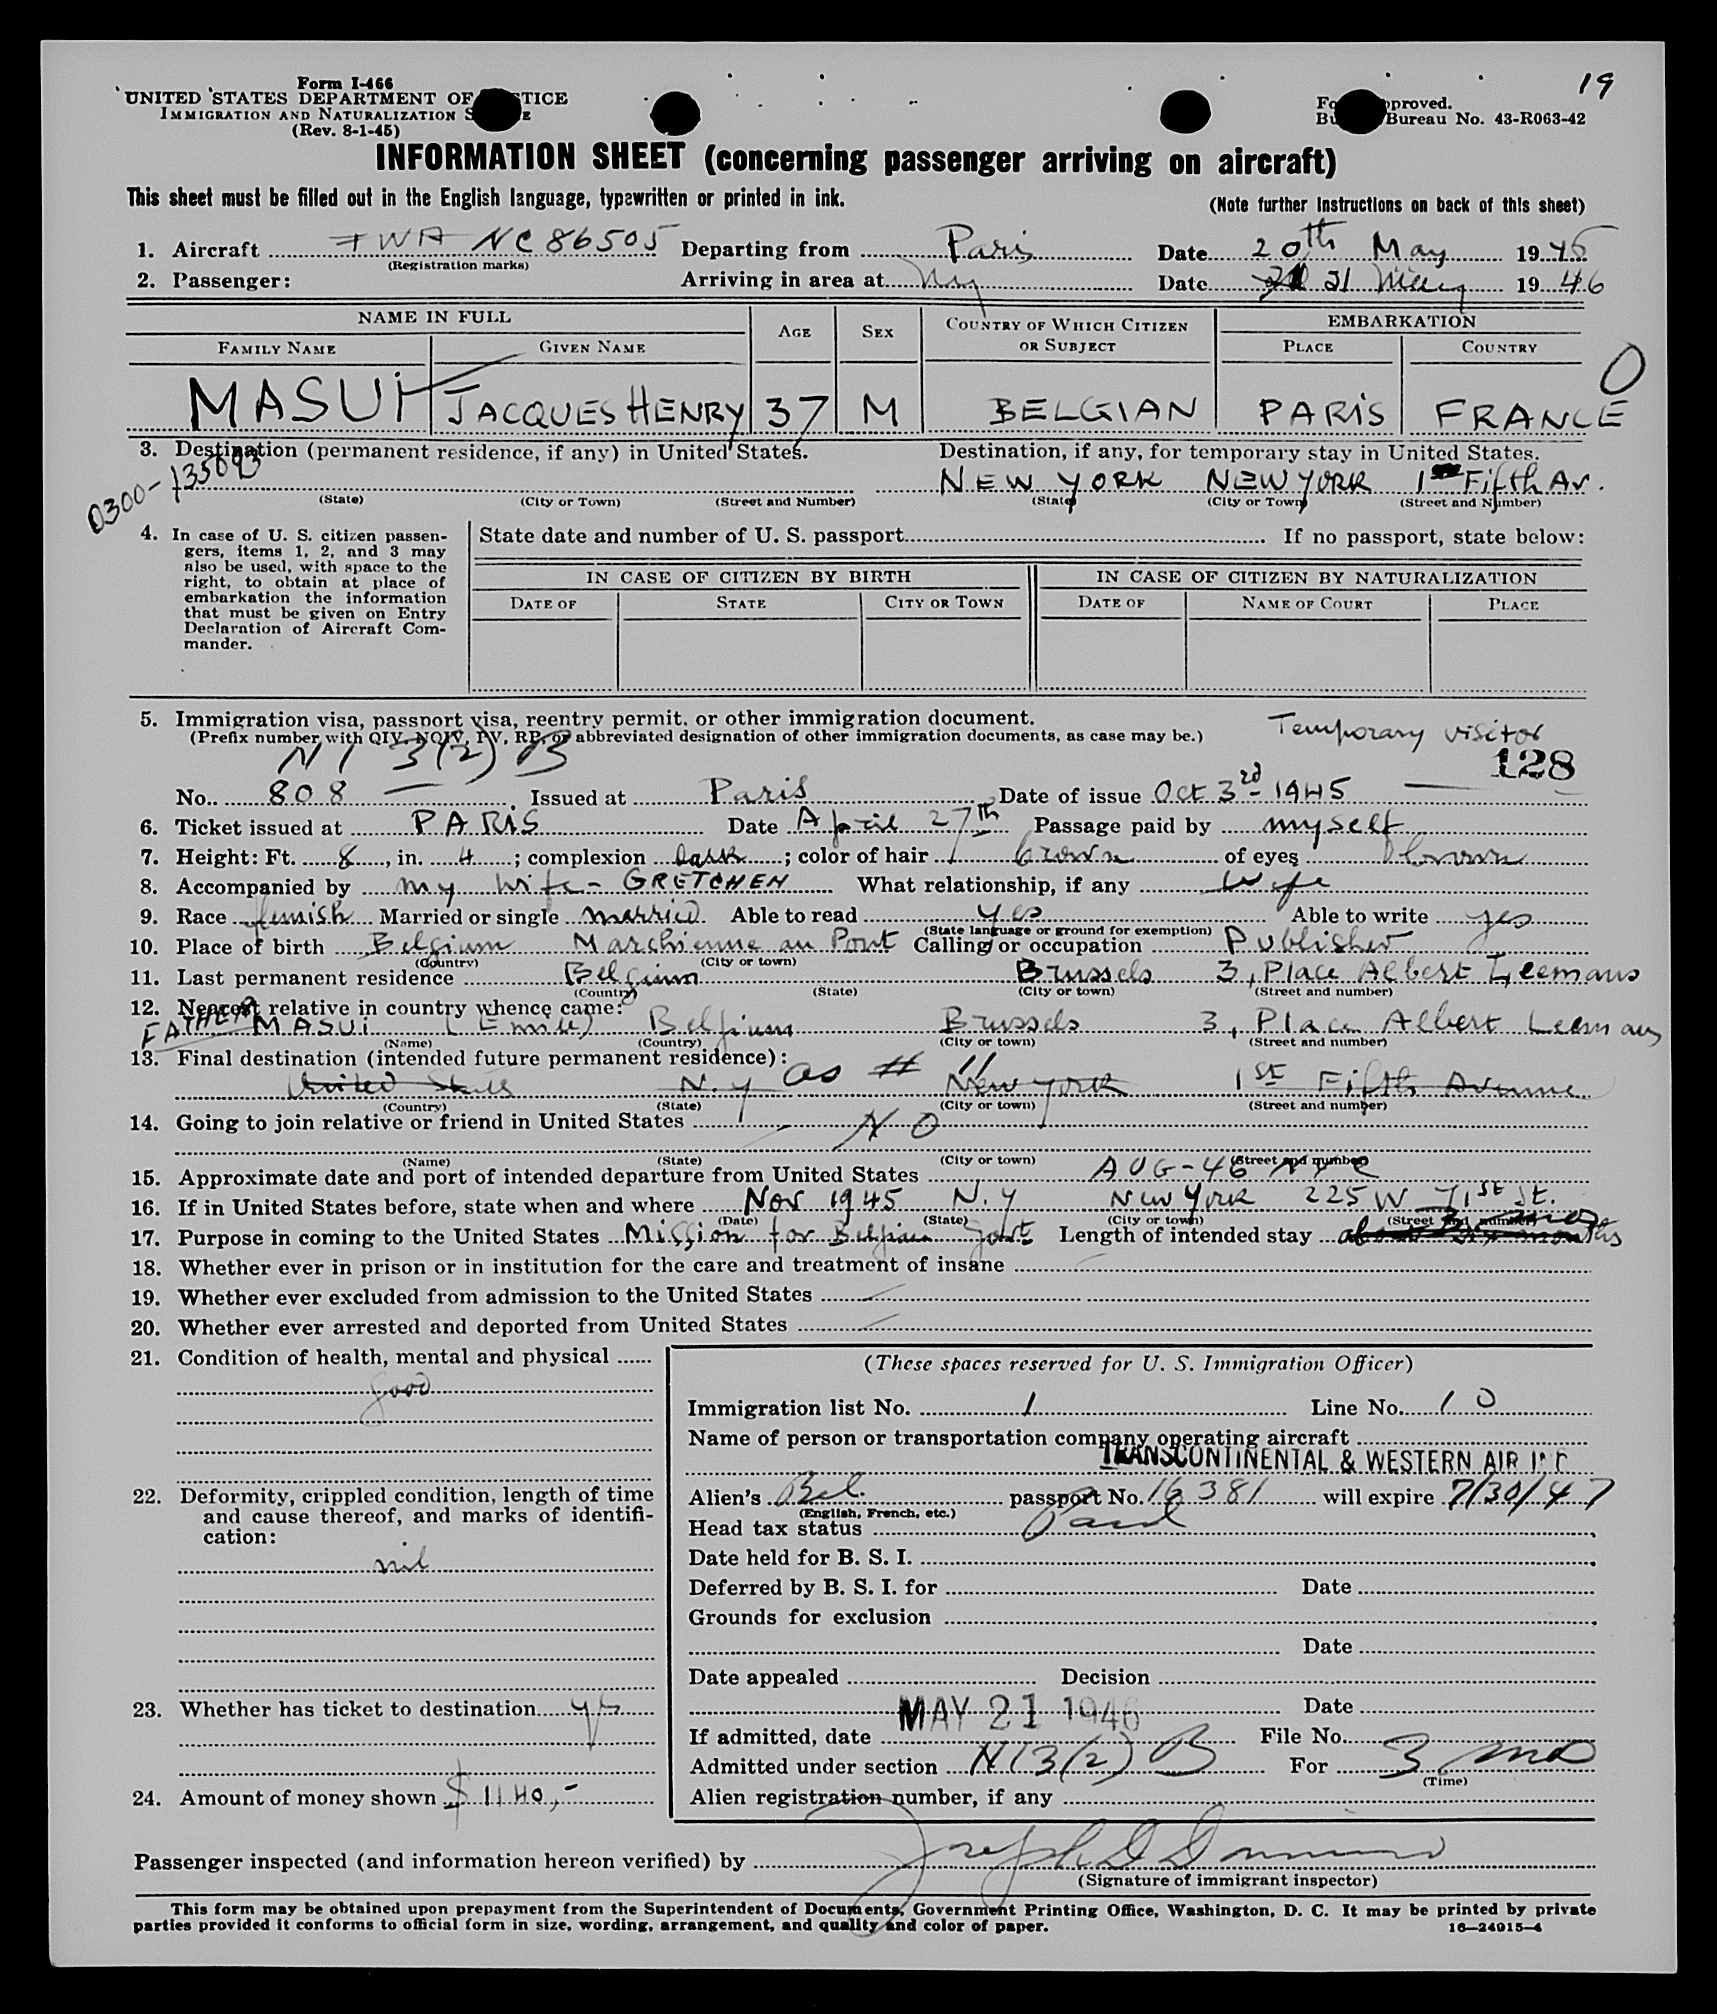 19
Form I-466
UNITED STATES DEPARTMENT OF
IMMIGRATION AND NATURALIZATION
(Rev. 8-1-45)
Bureau No. 43-R063-42
INFORMATION SHEET (concerning passenger arriving on aircraft)
This sheet must be filled out in the English language, typewritten or printed in ink.
(Note further instructions on back of this sheet)
1. Aircraft TWA NC 86505 Departing from Paris Date 20th May 1945
(Registration marks)
2. Passenger: Arriving in area at NY Date 21 May 1946
NAME IN FULL AGE SEX COUNTRY OF WHICH CITIZEN OR SUBJECT EMBARKATION
FAMILY NAME GIVEN NAME PLACE COUNTRY
MASUI JACQUES HENRY 37 M BELGIAN PARIS FRANCE O
3. Destination (permanent residence, if any) in United States. Destination, if any, for temporary stay in United States.
0300-135693 NEW YORK NEW YORK 1 Fifth Av.
(State) (City or Town) (Street and Number) (State) (City or Town) (Street and Number)
4. In case of U. S. citizen passen-
gers, items 1, 2, and 3 may
also be used, with space to the
right, to obtain at place of
embarkation the information
that must be given on Entry
Declaration of Aircraft Com-
mander.
State date and number of U. S. passport If no passport, state below:
IN CASE OF CITIZEN BY BIRTH IN CASE OF CITIZEN BY NATURALIZATION
DATE OF STATE CITY OR TOWN DATE OF NAME OF COURT PLACE
5. Immigration visa, passport visa, reentry permit, or other immigration document.
(Prefix number with QIV, NQIV, PV, RP, or abbreviated designation of other immigration documents, as case may be.)
Temporary visitor
NI 3(2) B
128
No. 808 Issued at Paris Date of issue Oct 3rd 1945
6. Ticket issued at PARIS Date April 27th Passage paid by myself
7. Height: Ft. 8, in. 4; complexion dark; color of hair brown of eyes brown
8. Accompanied by my wife - GRETCHEN What relationship, if any wife
9. Race flemish Married or single married. Able to read yes Able to write yes
(State language or ground for exemption)
10. Place of birth Belgium Marchienne au Pont Calling or occupation Publisher
(Country) (City or town)
11. Last permanent residence Belgium Brussels 3, Place Albert Leemans
(Country) (State) (City or town) (Street and number)
12. Nearest relative in country whence came:
FATHER MASUI (Emile) Belgium Brussels 3, Place Albert Leemans
(Name) (Country) (City or town) (Street and number)
13. Final destination (intended future permanent residence):
as # 11
United States N.Y New York 1st Fifth Avenue
(Country) (State) (City or town) (Street and number)
14. Going to join relative or friend in United States NO
(Name) (State) (City or town) (Street and number)
15. Approximate date and port of intended departure from United States AUG-46
16. If in United States before, state when and where Nov 1945 N.Y New York 225 W 71st St.
(Date) (State) (City or town) (Street and number)
17. Purpose in coming to the United States Mission for Belgian Govt Length of intended stay
18. Whether ever in prison or in institution for the care and treatment of insane
19. Whether ever excluded from admission to the United States
20. Whether ever arrested and deported from United States
21. Condition of health, mental and physical
good
22. Deformity, crippled condition, length of time
and cause thereof, and marks of identifi-
cation:
nil
23. Whether has ticket to destination yes
24. Amount of money shown $ 1140,-
(These spaces reserved for U. S. Immigration Officer)
Immigration list No. 1 Line No. 10
Name of person or transportation company operating aircraft
TRANSCONTINENTAL & WESTERN AIR INC
Alien's Bel. passport No. 16381 will expire 7/30/47
(English, French, etc.)
Head tax status Paid
Date held for B. S. I.
Deferred by B. S. I. for Date
Grounds for exclusion
Date
Date appealed Decision
Date
MAY 21 1946
If admitted, date File No.
Admitted under section NI 3(2) B For 3 mo
(Time)
Alien registration number, if any
Passenger inspected (and information hereon verified) by
(Signature of immigrant inspector)
This form may be obtained upon prepayment from the Superintendent of Documents, Government Printing Office, Washington, D. C. It may be printed by private
parties provided it conforms to official form in size, wording, arrangement, and quality and color of paper.
16—24915-4